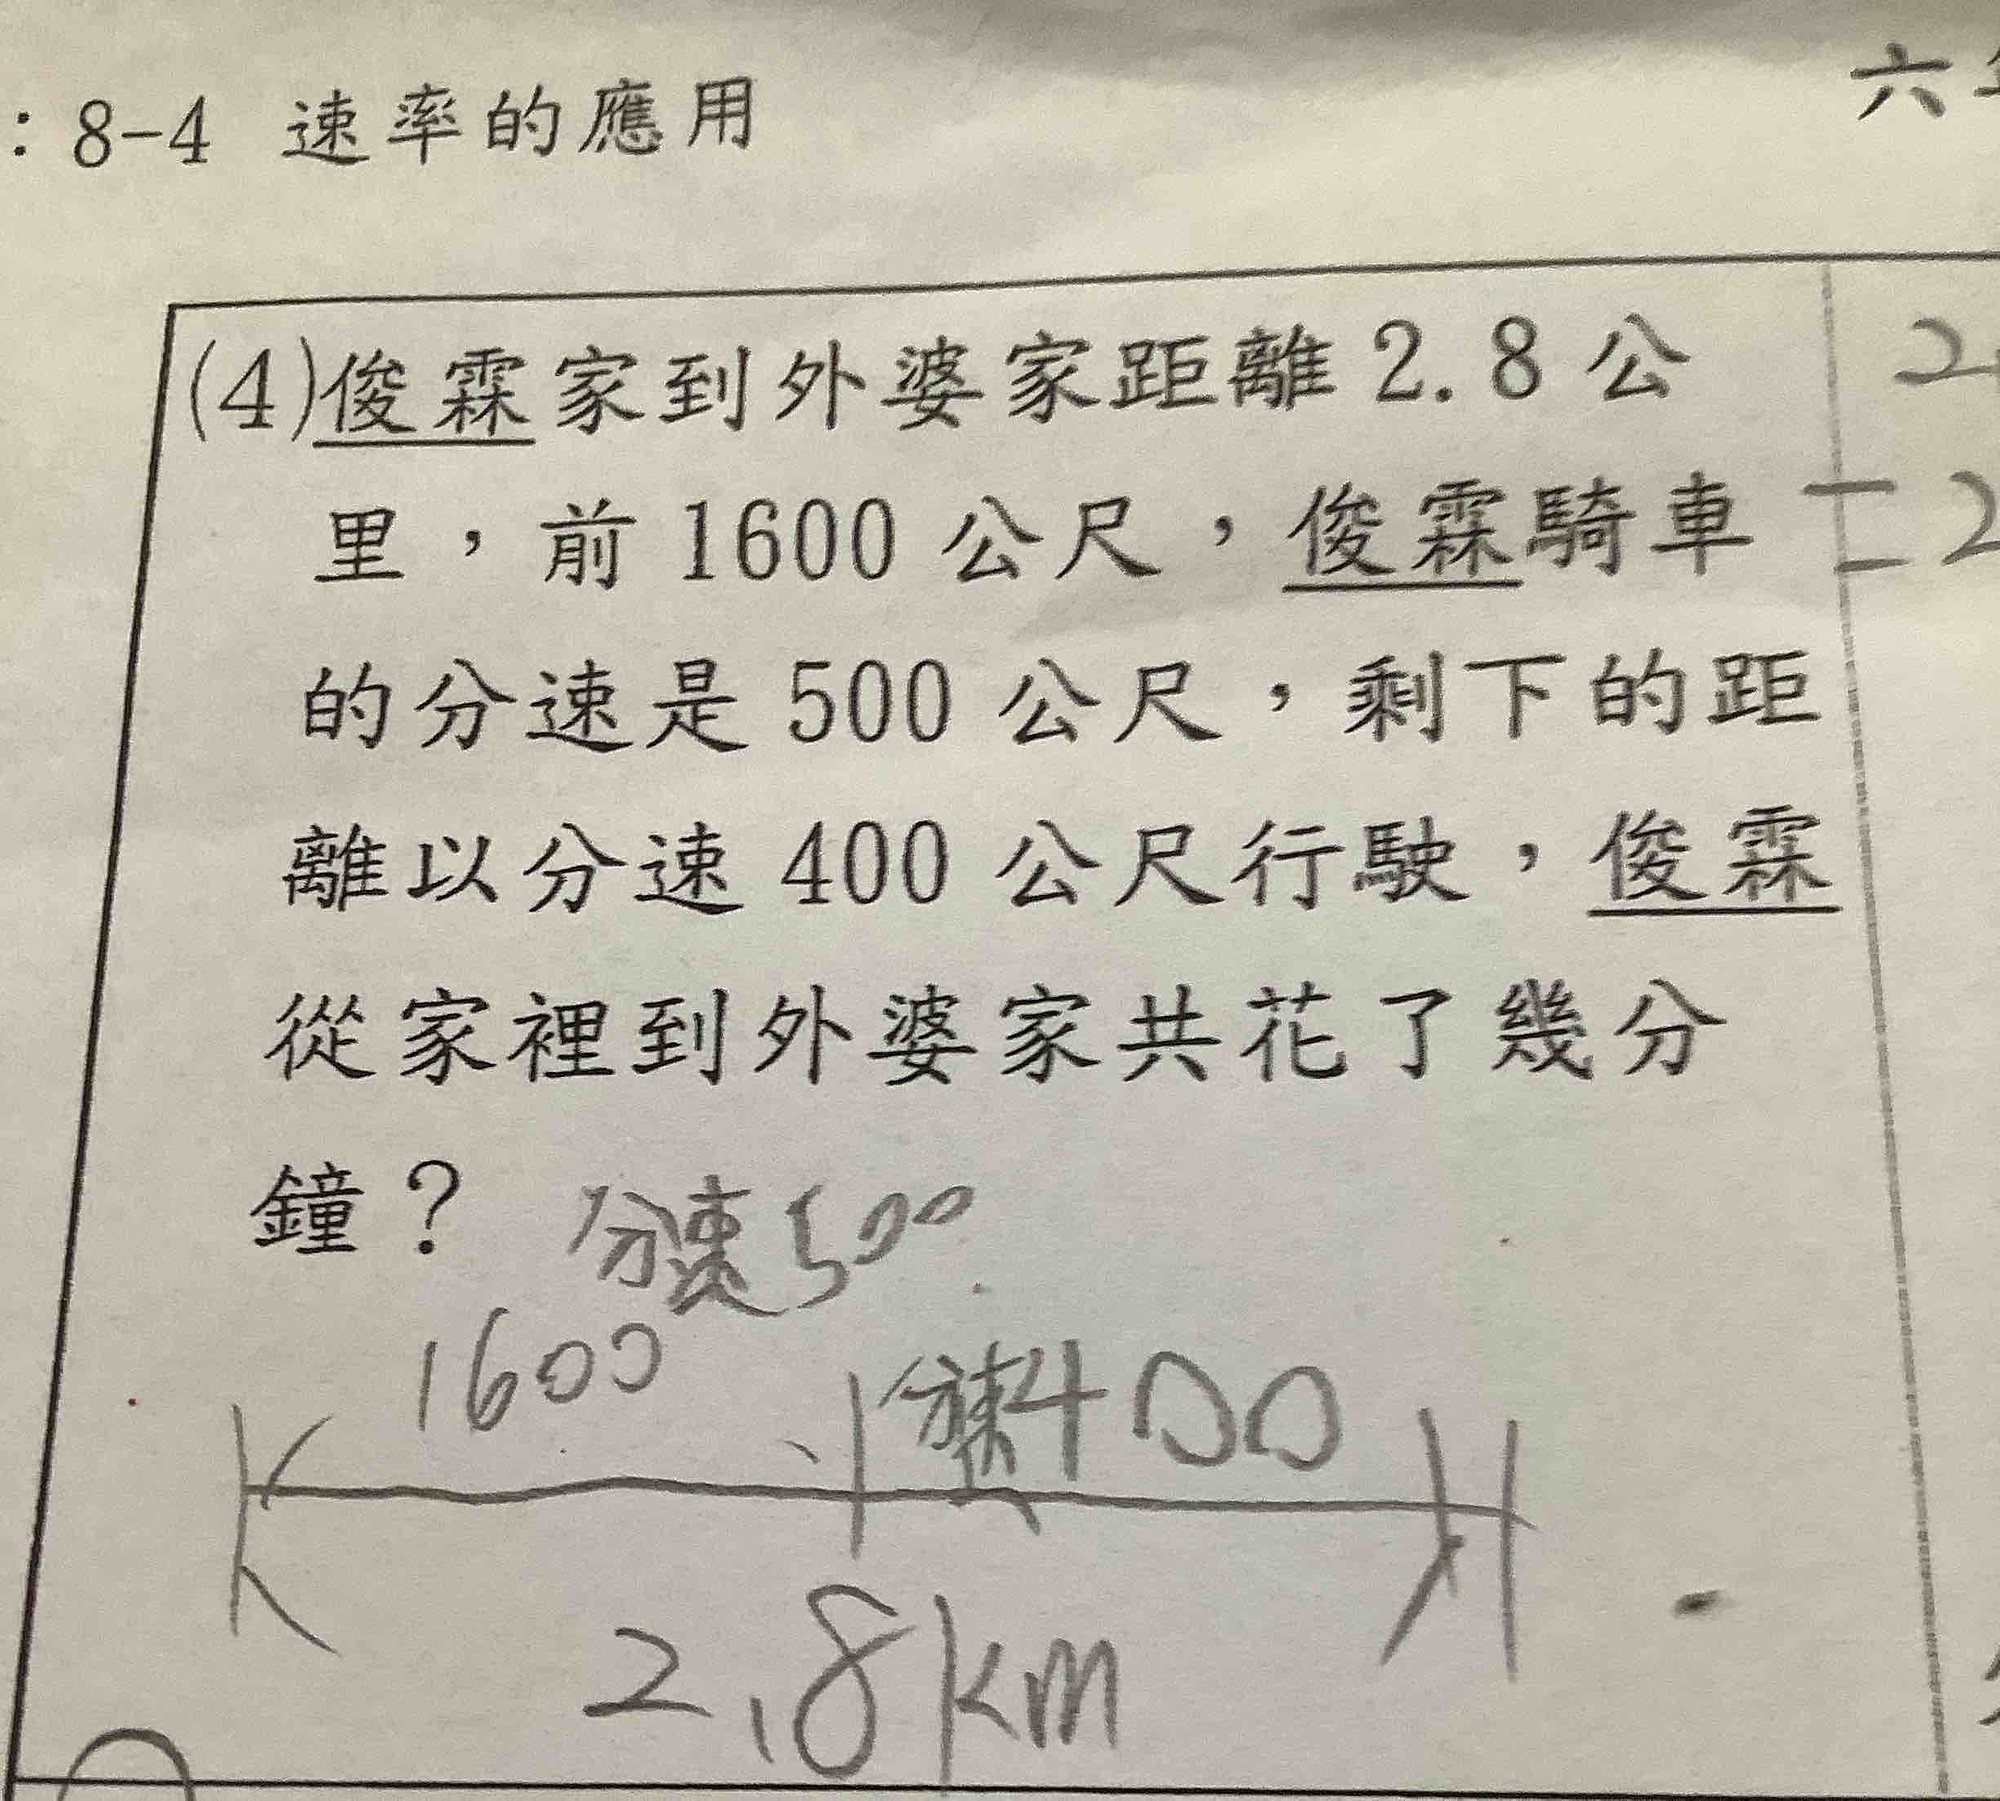 ：8-4 速率的應用
六
(4)俊霖家到外婆家距離2.8公
里，前1600公尺，俊霖騎車
的分速是500公尺，剩下的距
離以分速400公尺行駛，俊霖
從家裡到外婆家共花了幾分
鐘？
分速500
1600
分速400
2.8km
2
=2